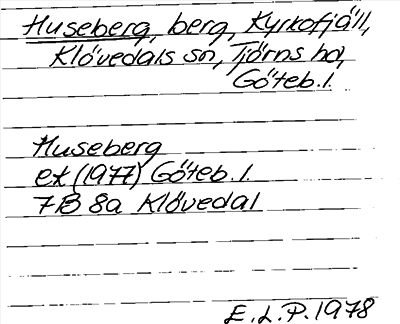 Huseberg, berg, Kyrkofjäll,
Klövedals sn, Tjörns hd,
Göteb. l.
Huseberg
ek (1977) Göteb. l.
7B 8a Klövedal
E.L.P. 1978